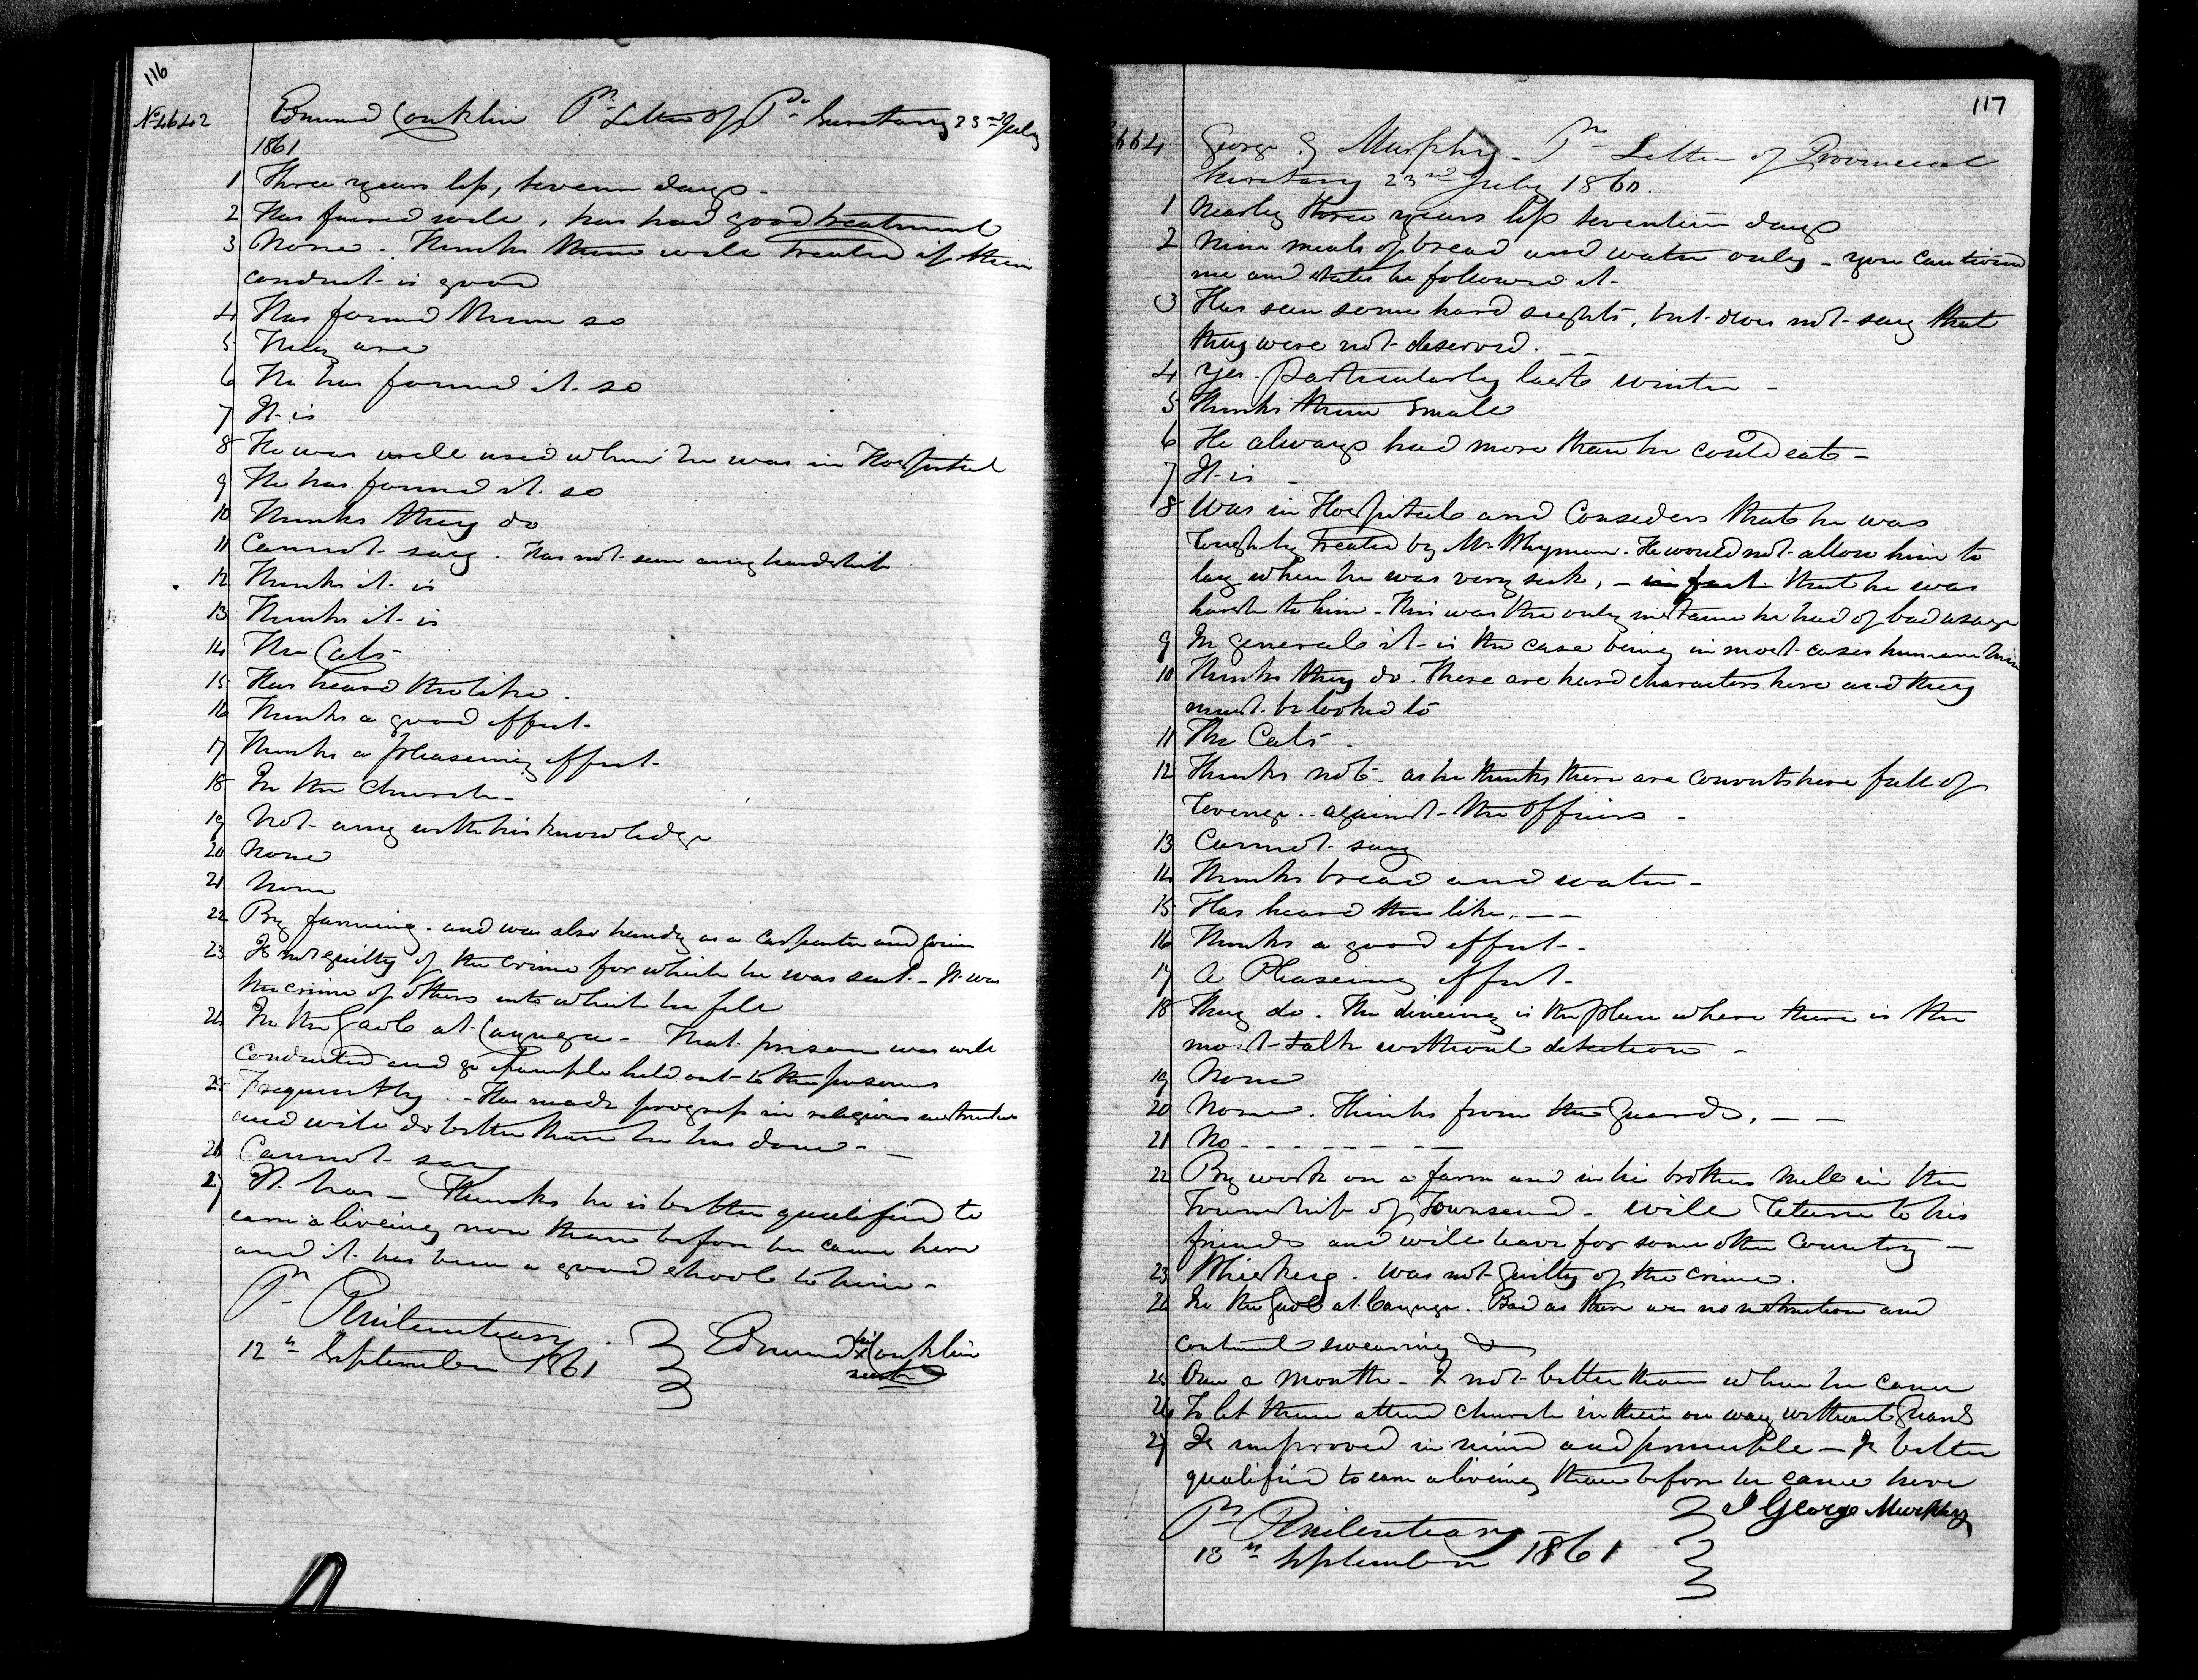 116
No 4642 Edmund Conklin Pr Letter of Pr Secretary 23rd July
1861
1 Three years less, seven days -
2 Has faired well, has had good treatment
3 None. Thinks them well treated if their
conduct is good
4 Has found them so
5 They are
6 He has found it so
7 It is
8 He was well used when he was in Hospital
9 He has found it so
10 Thinks they do
11 Cannot say. Has not seen any hardship
12 Thinks it is
13 Thinks it is
14 The Cats
15 Has heard the like.
16 Thinks a good effect.
17 Thinks a pleaseing effect.
18 In the Church -
19 Not any with his knowledge
20 None
21 None
22 By farming. and was also handy as a carpenter and
23 Is not guilty of the crime for which he was sent - It was
the crime of others into which he fell
24 In the Gaol at Cayuga - That prison was well
conducted and example held out to the prisoners
25 Frequently. - Has made progress in religious instruction
and will do better than he has done - -
26 Cannot say
27 It has - Thinks he is better qualified to
earn a liveing now than before he came here
and it has been a good school to him -
Pr Penitentiary.
12th September 1861 Edmund his x mark Conklin
117
664 George G Murphy - Pr Letter of Provincial
Secretary 23rd July 1860.
1 Nearly three years less seventeen days
2 Nine meals of bread and water only - you cautioned
me and states he followed it -
3 Has seen some hard sights, but does not say that
they were not deserved. - -
4 Yes. particularly last winter -
5 Thinks them small
6 He always had more than he could eat -
7 It is -
8 Was in Hospital and Considers that he was
roughly treated by Mr Whyman. He would not allow him to
lay when he was very sick, - in fact that he was
harsh to him - This was the only instance he had of bad usage
9 In general it is the case being in most cases humane
10 Thinks they do. There are hard characters here and they
must be looked to
11 The Cats.
12 Thinks not. as he thinks there are convicts here full of
revenge .. against the Officers -
13 Cannot say
14 Thinks bread and water -
15 Has heard the like. - -
16 Thinks a good effect -.
17 A Pleaseing effect.
18 They do. The dineing is the place where there is the
most talk without detection -
19 None
20 None. Thinks from the Guards, - -
21 No - - - - - - -
22 By work on a farm and in his brothers mill in the
Township of Townsend - will return to his
friends and will leave for some other Country -
23 Whiskey. was not guilty of the crime.
24 In the Gaol at Cayuga. Bad as there was no instruction and
continual swearing &
25 Once a month - Is not better than when he came
26 To let them attend church in their own way without Guard
27 Is improved in mind and principle - Is better
qualified to earn a liveing than before he came here
Pr Penitentiary I George Murphy
13th September 1861